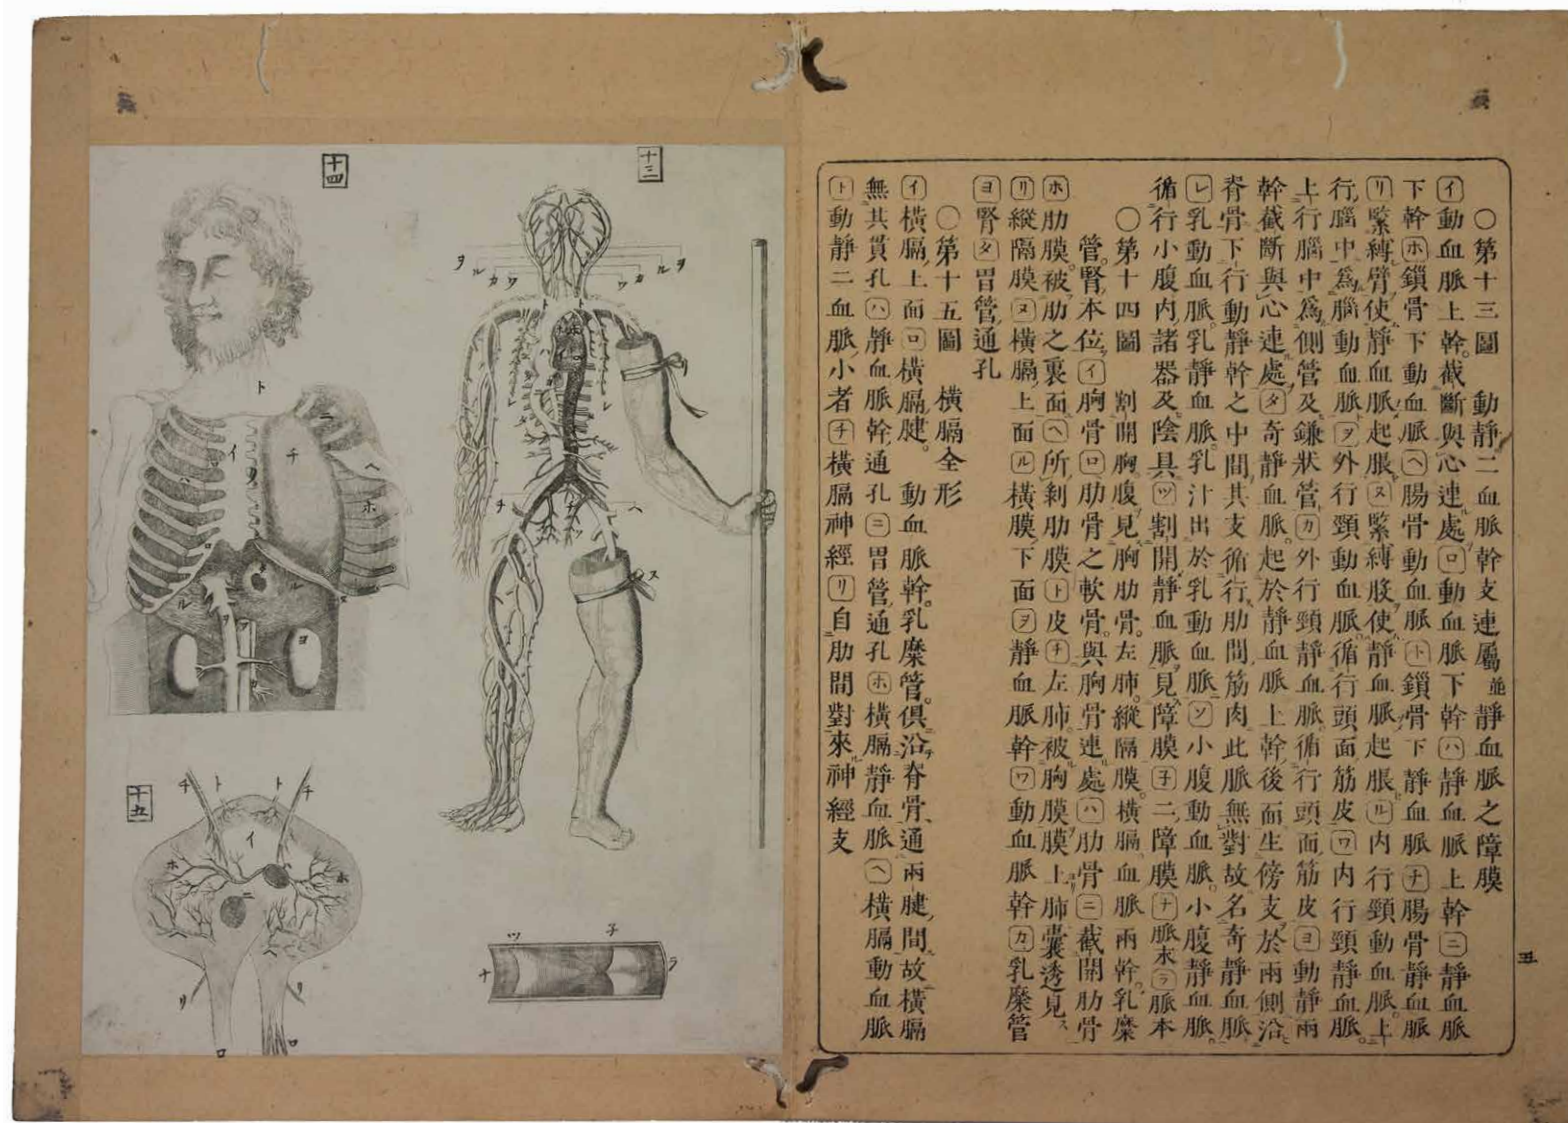 〇第十三圖　動靜二血脈幹支連屬並靜血脈之障膜
㋑動血脈上幹。截斷與心連處㋺動血脈下幹㋩靜血脈上幹㋥靜血脈
下幹㋭鎖骨下動血脈㋬腸骨動血脈㋣鎖骨下靜血脈㋠腸骨靜血脈
㋷緊縛臂使靜血脈起脹㋦緊縛股使靜血脈起脹㋸內行頸動血脈。上
行腦中爲腦動血脈㋾外行頸動血脈循行頭面筋皮㋻內行頸靜血脈。
上行腦中爲側管及鎌狀管㋕外行頸靜血脈循行頭面筋皮㋵動靜兩
幹截斷與心連處㋟奇靜血脈。起於靜血脈上幹後面生傍支於兩側沿
脊骨下行動靜幹之中間其支循行肋間筋肉此脈無對故名奇靜血脈
㋹乳動血脈。乳靜血脈乳汁出於乳動血脈㋞小腹動血脈。小腹靜血脈。
循行小腹內諸器及陰具㋡割開靜血脈見障膜㋧二障膜㋤脈末㋶脈本
〇第十四圖　割開胸腹見胸肋骨。左肺。縱隔膜。橫膈血脈兩幹。乳糜
管。腎本位㋑胸骨㋺肋骨之軟骨。與胸骨連處㋩肋骨㋥截開肋骨
㋭肋膜。被肋之裏面㋬所剥肋膜㋣皮㋠左肺。被胸膜膜上肺囊透見
㋷縱隔膜㋦橫膈上面㋸橫膜下面㋾靜血脈幹㋻動血脈幹㋕乳糜管
㋵腎㋟胃管通孔
〇第十五圖　橫膈全形
㋑橫膈上面㋺橫膈腱。動血脈幹。乳糜管。俱沿脊骨通兩腱間故橫膈
無其貫孔㋩靜血脈幹通孔㋥胃管通孔㋭橫膈靜血脈㋬橫膈動血脈
㋣動靜二血脈小者㋠橫膈神經㋷自肋間對來神經支
五
十三
ヲ ル カ ワ
ワ カ ル ヲ
レ
チ ヘ
ヌ
ツ 子
ナ ラ
十四
ト
イ チ ヘ
ホ
ル
ヨ
十五
チ ト ト チ
イ
ヘ
リ リ
ロ ロ